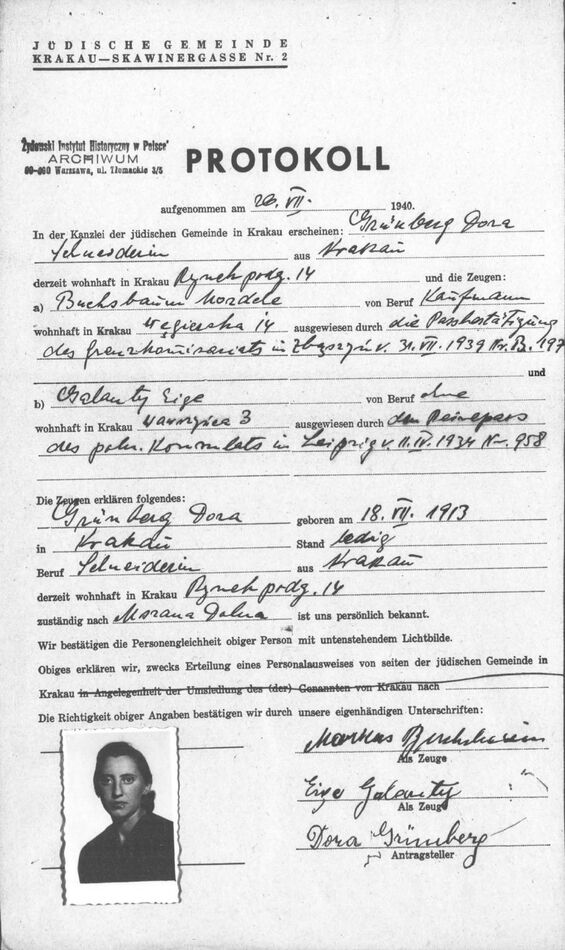 JÜDISCHE GEMEINDE
KRAKAU—SKAWINERGASSE Nr. 2
Żydowski Instytut Historyczny w Polsce
ARCHIWUM
00-090 Warszawa, ul. Tłomackie 3/5
PROTOKOLL
aufgenommen am 26. VII. 1940.
In der Kanzlei der jüdischen Gemeinde in Krakau erscheinen: Grünberg Dora
Schneiderin aus Krakau
derzeit wohnhaft in Krakau Rynek podg. 14 und die Zeugen:
a) Buchsbaum Mordele von Beruf Kaufmann
wohnhaft in Krakau węgierska 14 ausgewiesen durch die Passbestätigung
des Grenzkomisariats in Zbąszyń v. 31. VII. 1939 Nr. 197
und
b) Galanty Eige von Beruf ohne
wohnhaft in Krakau 3 ausgewiesen durch den Reisepass
des poln. Konsulats in Leipzig v. 11. IV. 1934 Nr. 958
Die Zeugen erklären folgendes:
Grünberg Dora geboren am 18. VII. 1913
in Krakau Stand ledig
Beruf Schneiderin aus Krakau
derzeit wohnhaft in Krakau Rynek podg. 14
zuständig nach Mszana Dolna ist uns persönlich bekannt.
Wir bestätigen die Personengleichheit obiger Person mit untenstehendem Lichtbilde.
Obiges erklären wir, zwecks Erteilung eines Personalausweises von seiten der jüdischen Gemeinde in
Krakau in Angelegenheit der Umsiedlung des (der) Genannten von Krakau nach
Die Richtigkeit obiger Angaben bestätigen wir durch unsere eigenhändigen Unterschriften:
Markus Buchsbaum
Als Zeuge
Eige Galanty
Als Zeuge
Dora Grünberg
Antragsteller